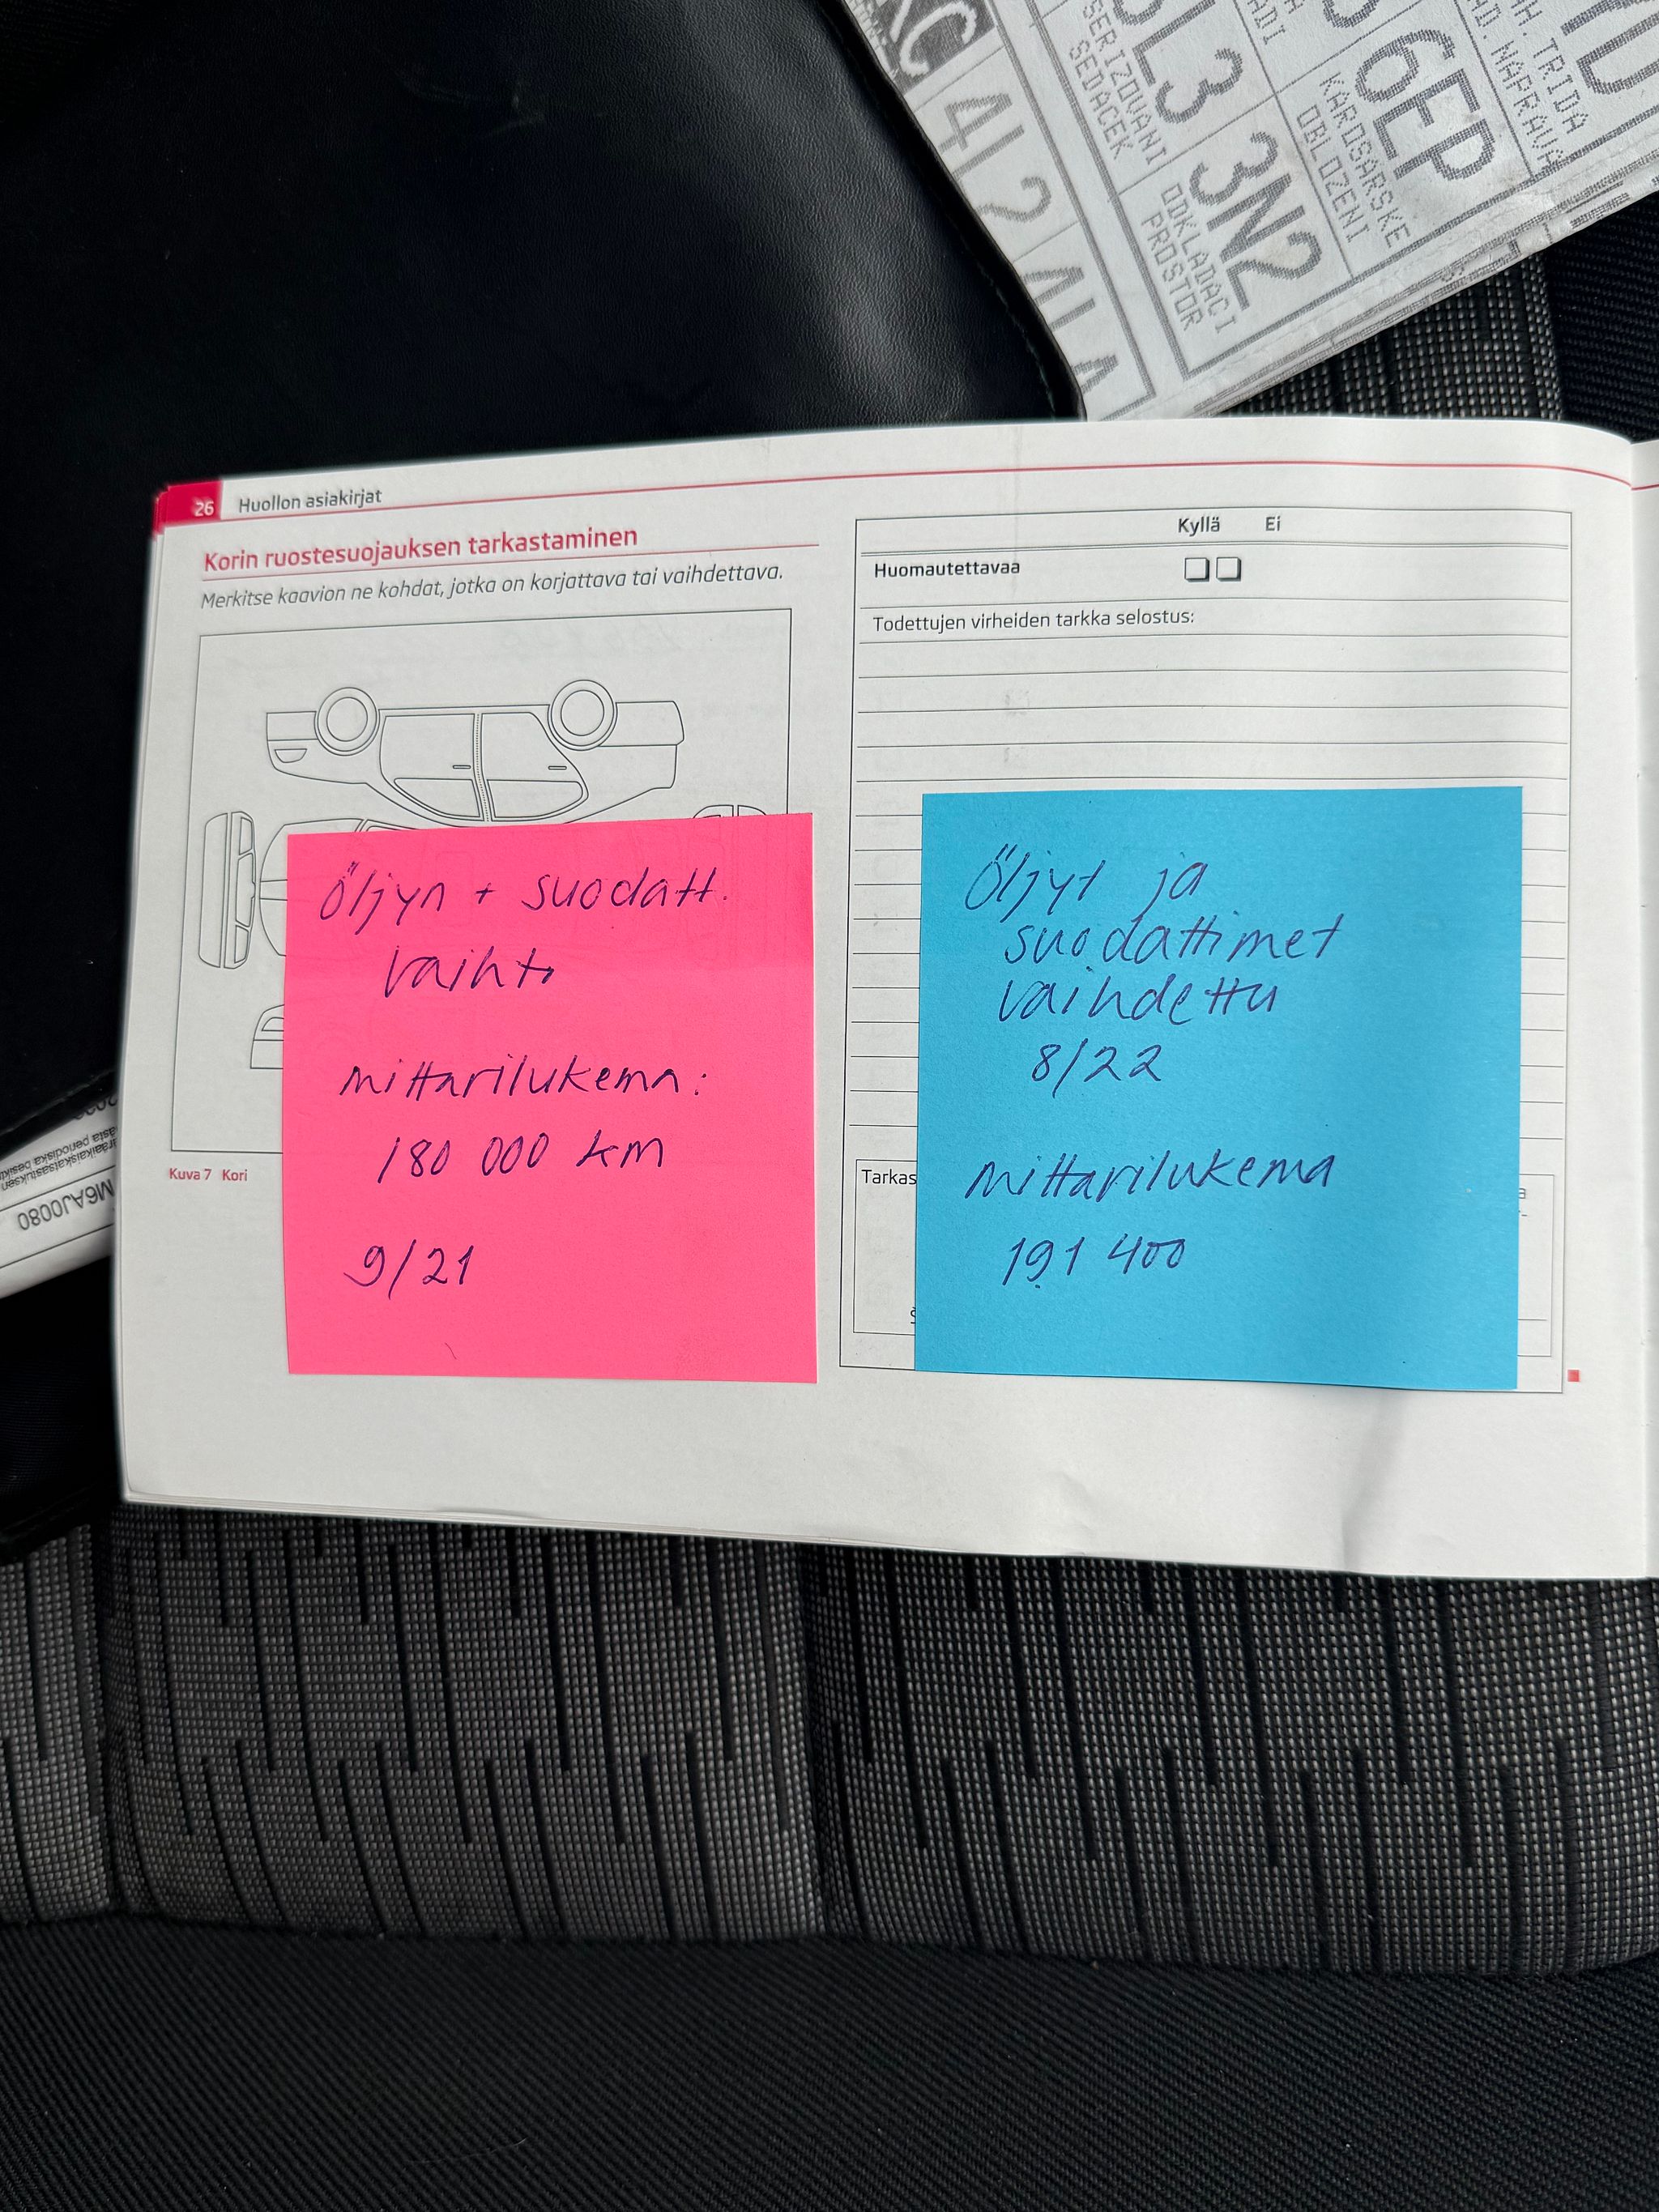 KC
4L2
4LA
SERIZOVANI
SEDACEK
5L3
3N2
ODKLADACI
PROSTOR
6EP
KAROSARSKE
OBLOZENI
TRIDA
26 Huollon asiakirjat
Korin ruostesuojauksen tarkastaminen
Merkitse kaavion ne kohdat, jotka on korjattava tai vaihdettava.
Kuva 7 Kori
Kyllä Ei
Huomautettavaa
Todettujen virheiden tarkka selostus:
Tarkas
Öljyn + suodatt.
vaihto
Mittarilukema:
180 000 km
9/21
Öljyt ja
suodattimet
vaihdettu
8/22
Mittarilukema
191 400
M6AJ0080